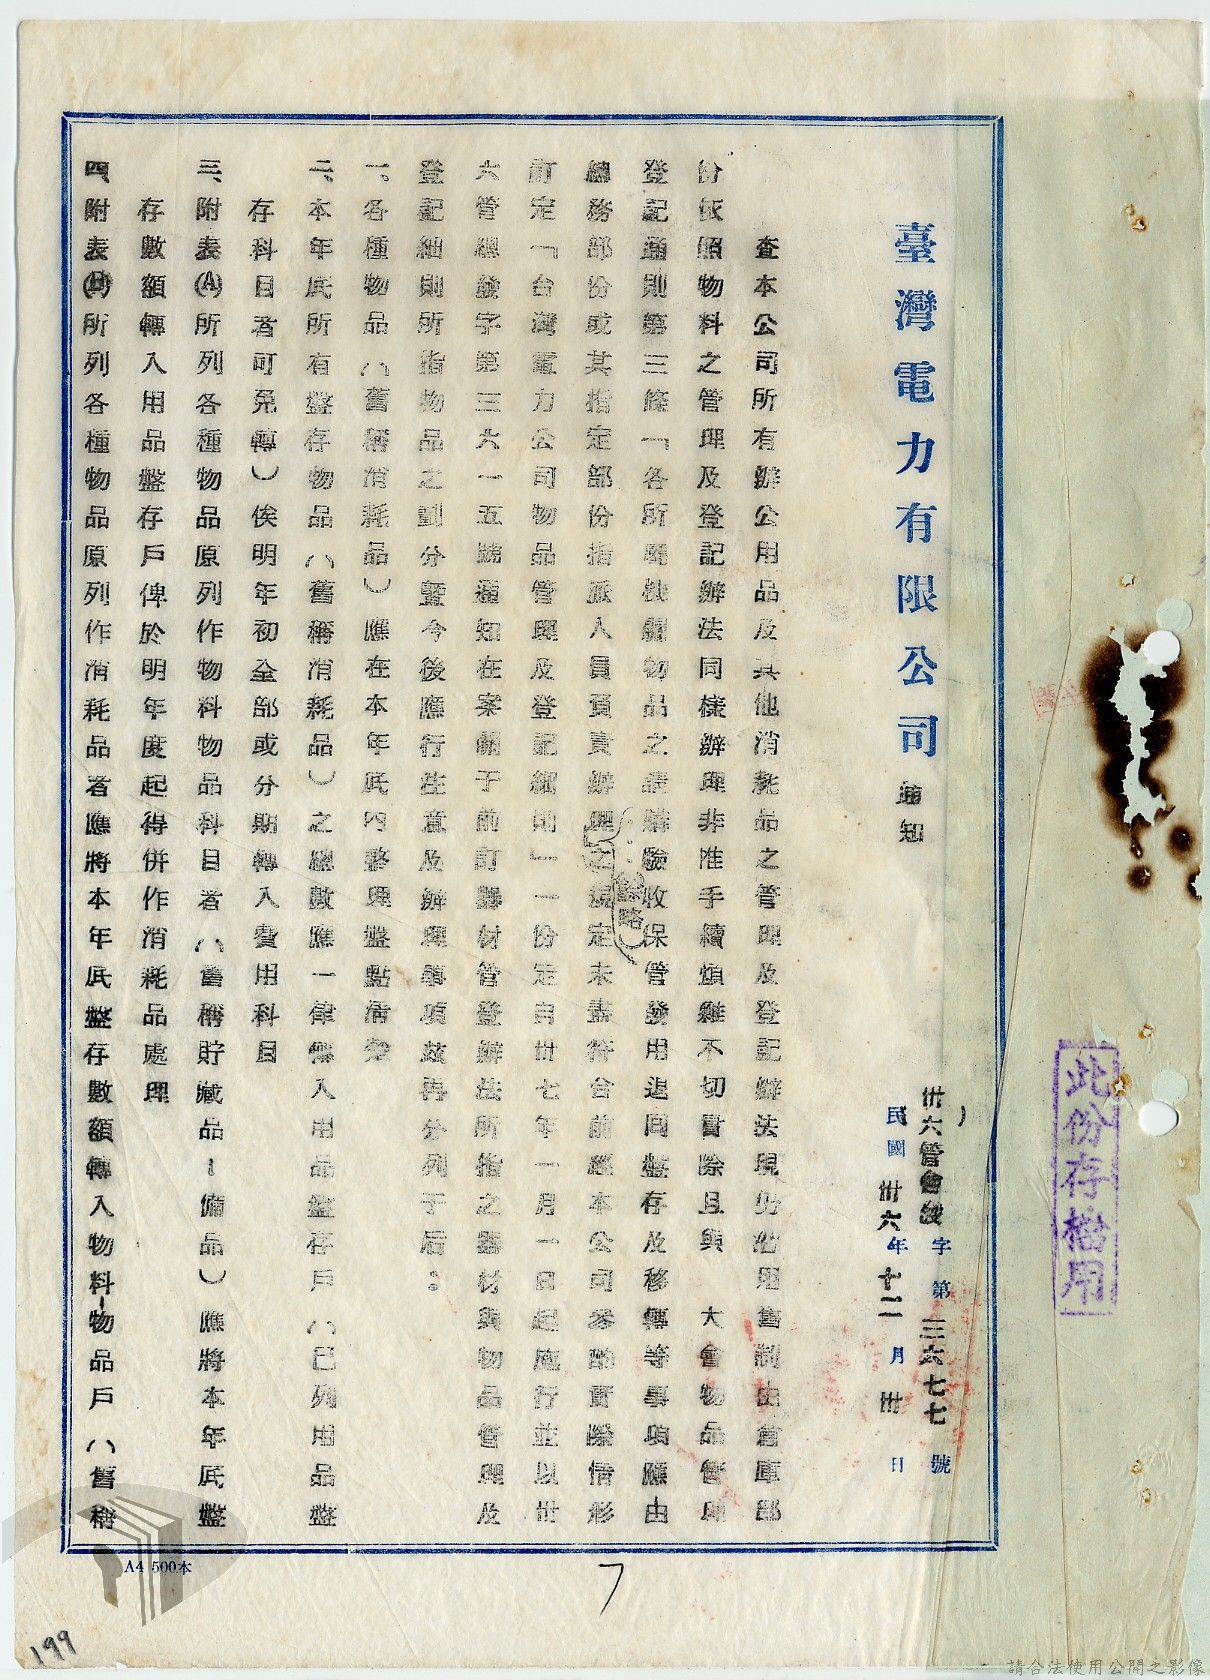 臺灣電力有限公司 通知
卅六管會發字第三六七七號
民國卅六年十二月卅日
查本公司所有辦公用品及其他消耗品之管理及登記辦法現仍沿用舊制由倉庫部
份依照物料之管理及登記辦法同樣辦理非惟手續煩雜不切實際且與 大會物品管理
登記通則第三條「各所 物品之請購驗收保管發用退回盤存及移轉等事項應由
總務部份或其指定部份指派人員負責辦理之規定未盡符合前經本公司參酌實際情形
(餘略)
訂定「台灣電力公司物品管理及登記細則」一份定自卅七年一月一日起應行並以卅
六管總發字第三六一五號通知在案關于前訂器材管登辦法所指之器材與物品管理及
登記細則所指物品之劃分暨今後應行注意及辦理事項茲再分列于后。
一。各種物品(舊稱消耗品)應在本年底內整理盤點清楚
二、本年底所有盤存物品(舊稱消耗品)之總數應一律轉入用品盤存戶(已列用品盤
存科目者可免轉)俟明年初全部或分期轉入費用科目
三、附表(A)所列各種物品原列作物料物品科目者(舊稱貯藏品-備品)應將本年底盤
存數額轉入用品盤存戶俾於明年度起得併作消耗品處理
四、附表(B)所列各種物品原列作消耗品者應將本年底盤存數額轉入物料-物品戶(舊稱
此份存檔用
A4 500本
7
199
請合法使用公開之影像